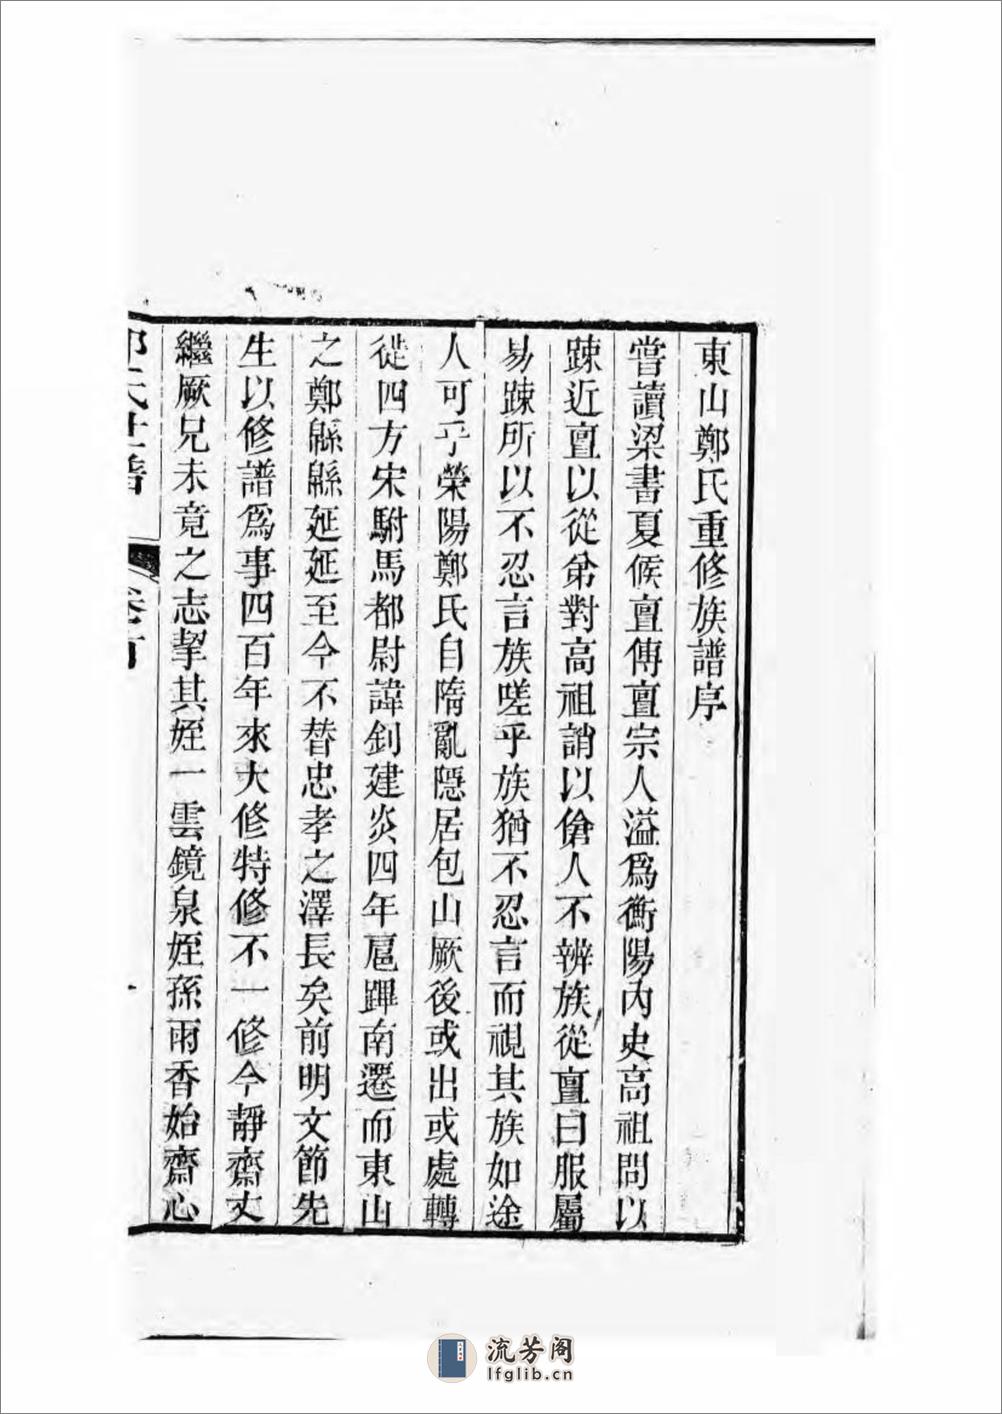 東山鄭氏重修族譜序
嘗讀梁書夏候亶傳亶宗人溢爲衡陽內史高祖問以
踈近亶以從弟對高祖誚以傖人不辨族從亶曰服屬
易踈所以不忍言族嗟乎族猶不忍言而視其族如途
人可乎榮陽鄭氏自隋亂隱居包山厥後或出或處轉
徙四方宋駙馬都尉諱釗建炎四年扈蹕南遷而東山
之鄭緜緜延延至今不替忠孝之澤長矣前明文節先
生以修譜爲事四百年來大修特修不一修今靜齋丈
繼厥兄未竟之志挈其姪一雲鏡泉姪孫雨香始齋心
鄭氏世譜
卷首
一
流芳阁
lfglib.cn